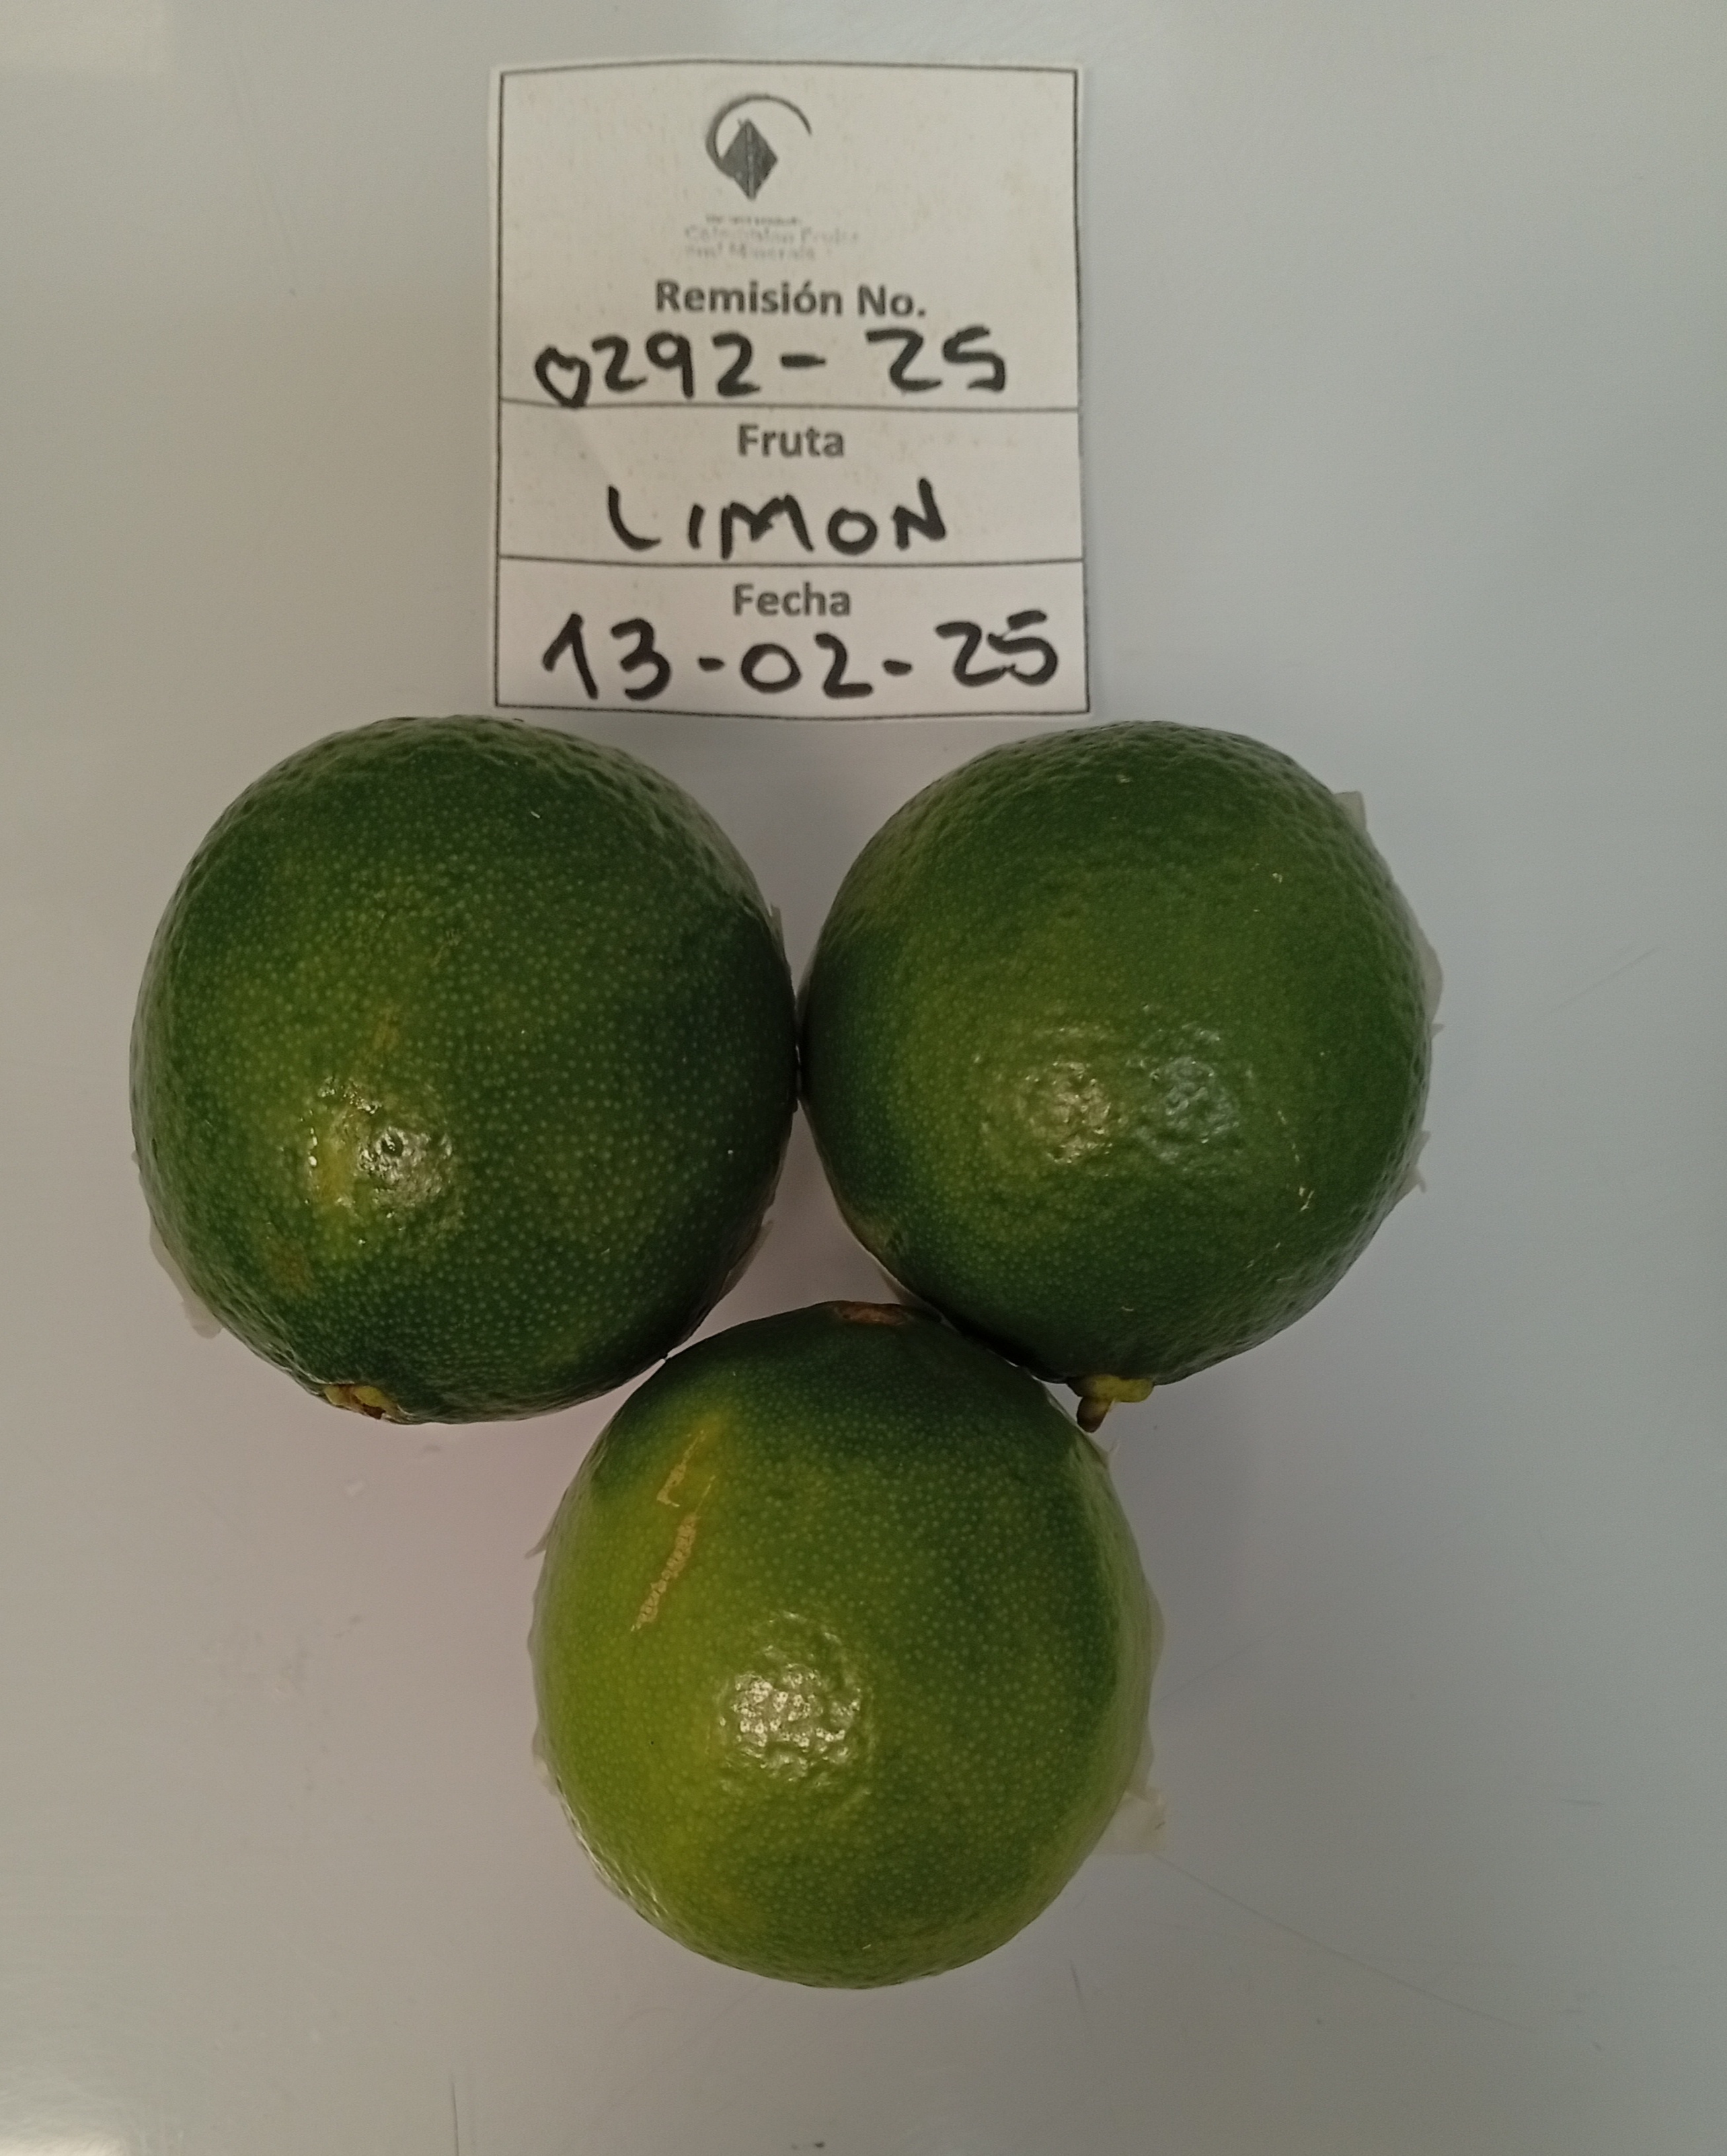 Colombian Fruits
and Minerals
Remisión No.
0292-25
Fruta
LIMON
Fecha
13-02-25